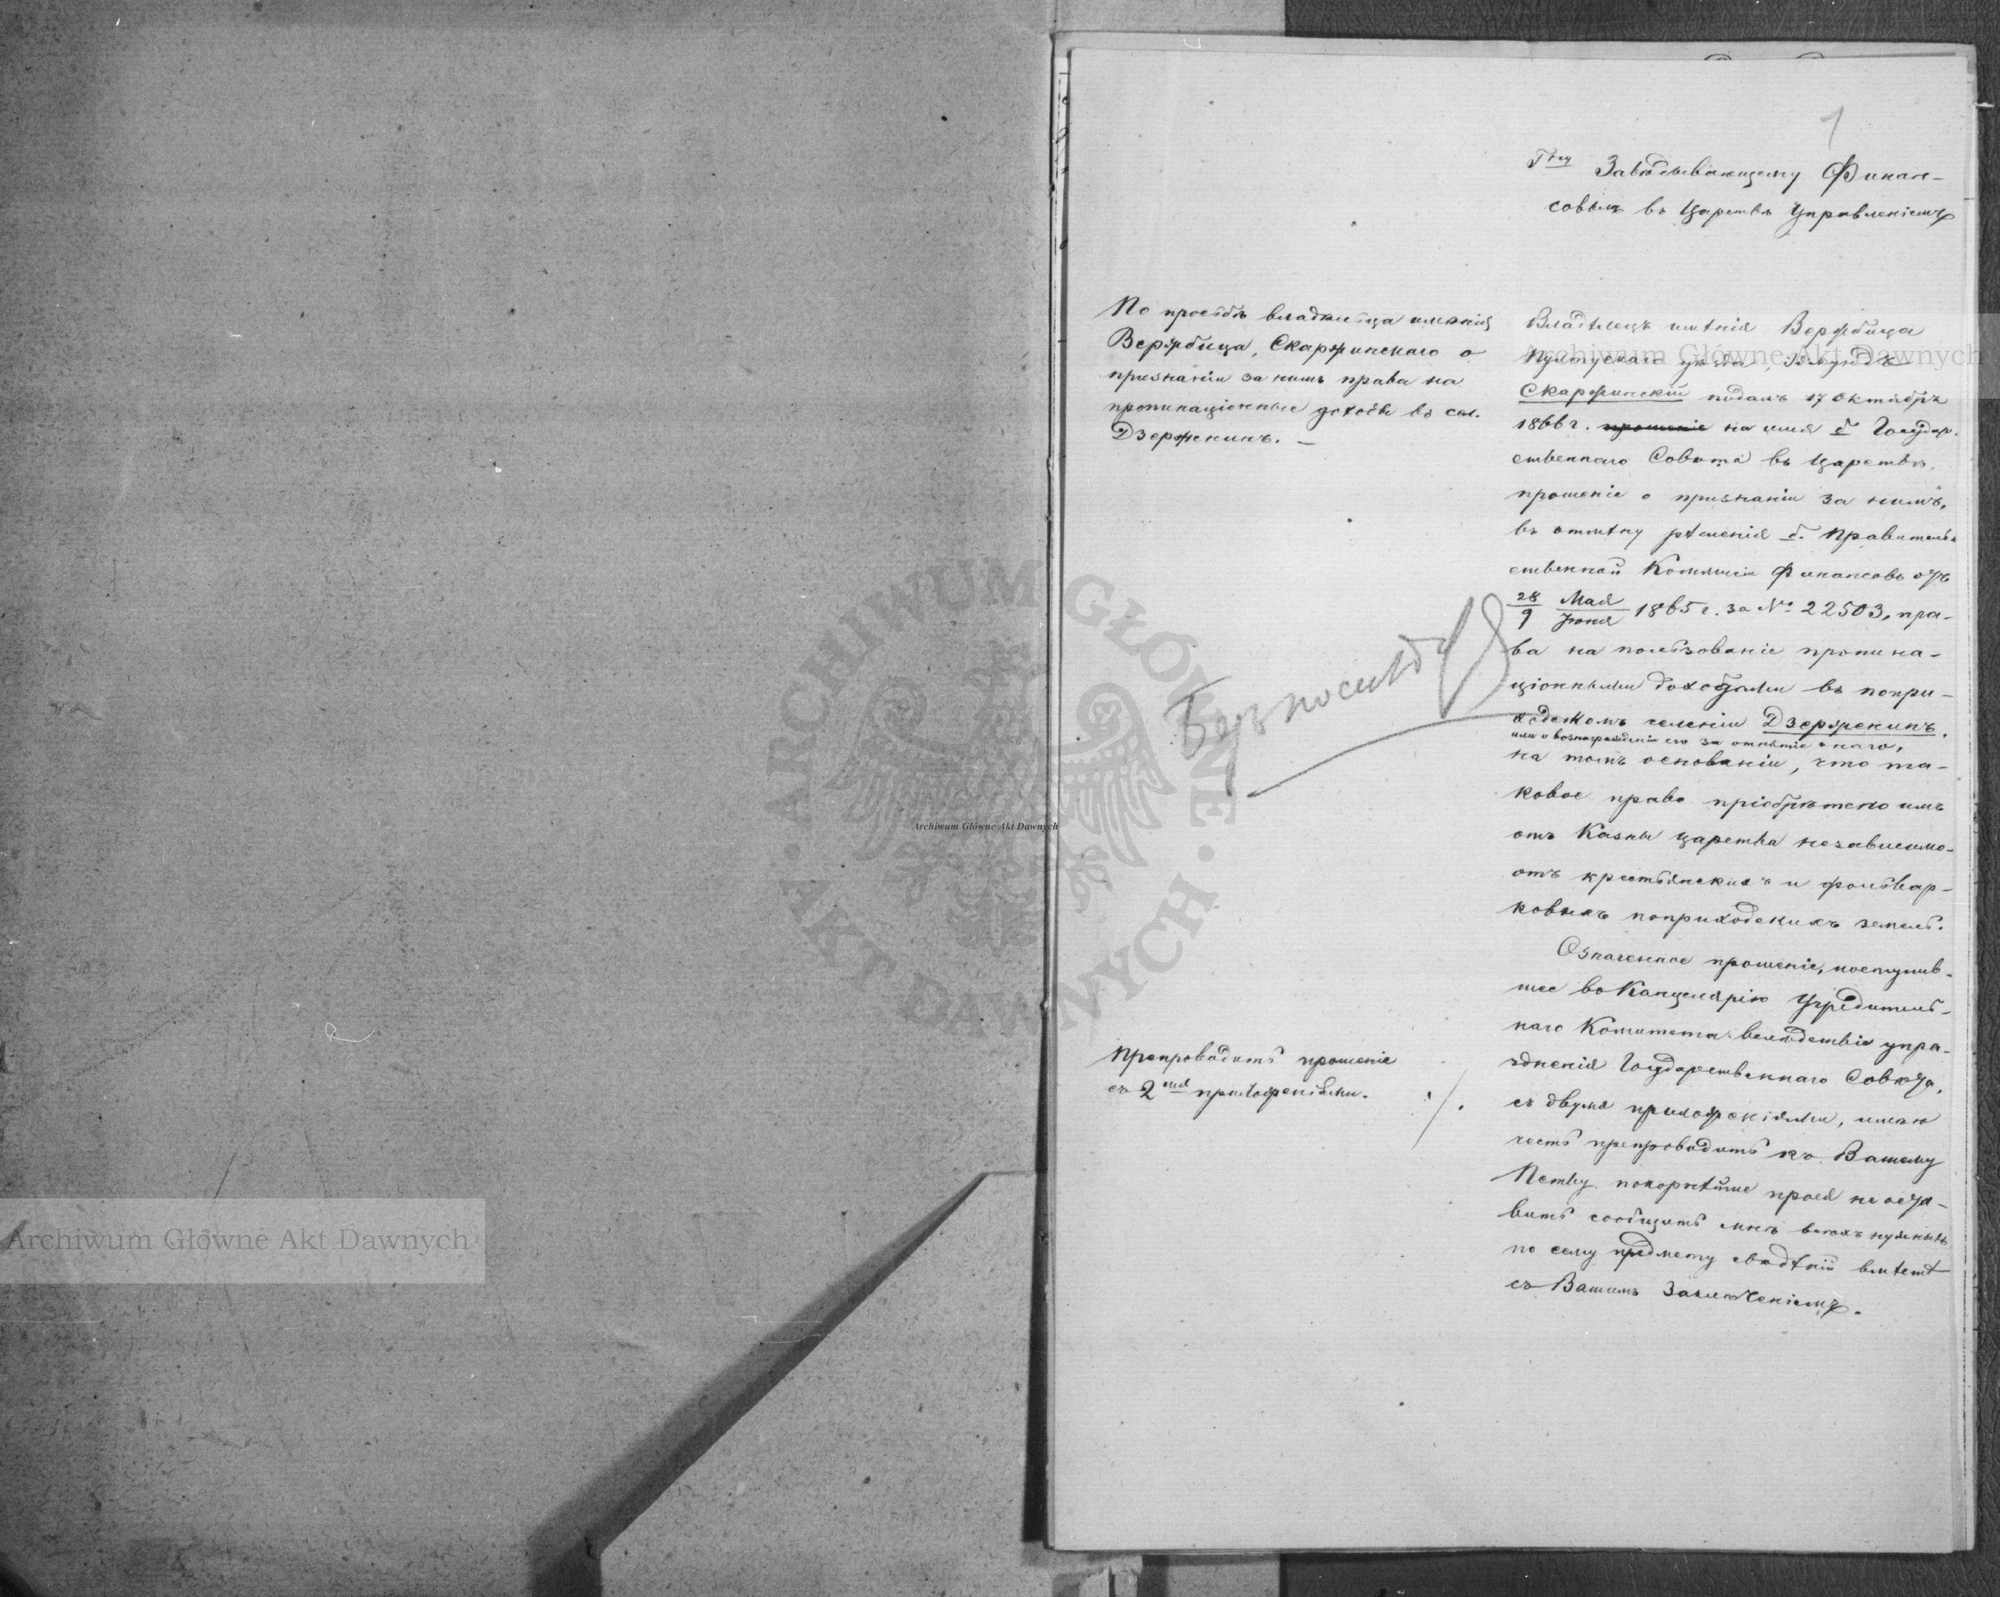 1
Гну Завѣдывающему Финан-
совымъ въ Царствѣ Управленіемъ
По просьбѣ владѣльца имѣнія
Вержбица, Скаржинскаго о
признаніи за нимъ права на
пропинаціонные доходы въ сел.
Дзержнинъ. —
Владѣлецъ имѣнія Вержбица
Пултускаго уѣзда,
Скаржинскій подалъ 17 Октября
1866 г. прошеніе на имя б. Государ-
ственнаго Совѣта въ Царствѣ,
прошеніе о признаніи за нимъ,
въ отмѣну рѣшенія б. Правитель-
ственной Комисіи Финансовъ отъ
28/9 Мая/Іюня 1865 г. за № 22503, пра-
ва на пользованіе пропина-
ціонными доходами въ попри-
ходскомъ селеніи Дзержнинъ,
или о вознагражденіи его за отнятіе онаго,
на томъ основаніи, что та-
ковое право пріобрѣтено имъ
отъ Казны Царства независимо
отъ крестьянскихъ и фольвар-
ковыхъ поприходскихъ земель.
Безъ послѣд
Означенное прошеніе, поступив-
шее въ Канцелярію Учредитель-
наго Комитета вслѣдствіе упра-
зднения Государственнаго Совѣта,
съ двумя приложеніями, имѣю
честь препроводить къ Вашему
Пству покорнѣйше прося не оста-
вить сообщить мнѣ всѣхъ нужныхъ
по сему предмету свѣдѣній вмѣстѣ
съ Вашимъ Заключеніемъ.
Препроводить прошеніе
съ 2мя приложеніями.
Archiwum Główne Akt Dawnych
Archiwum Główne Akt Dawnych
Archiwum Główne Akt Dawnych
ARCHIWUM GŁÓWNE · AKT DAWNYCH ·